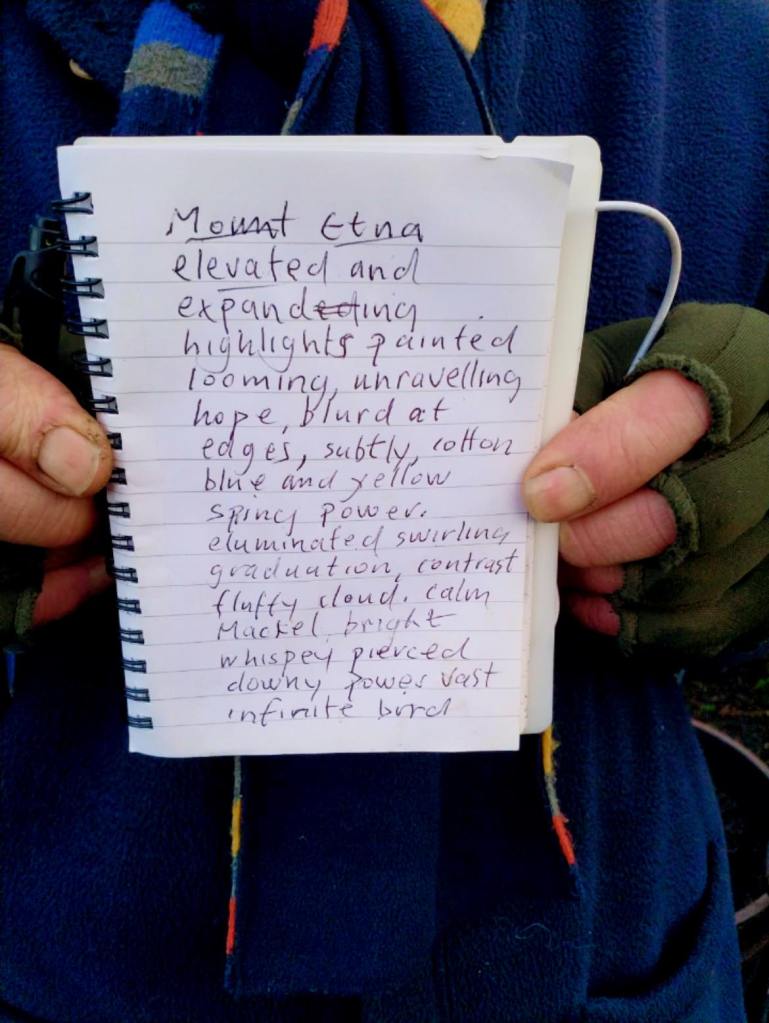 Mount Etna
elevated and
expanding
highlights painted
looming, unravelling
hope, blurd at
edges, subtly, cotton
blue and yellow
spring power.
eluminated swirling
graduation, contrast
fluffy cloud. calm
Mackel, bright
whispey pierced
downy power vast
infinite bird